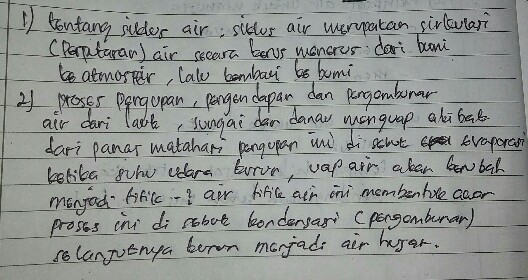 1) tentang siklus air : siklus air merupakan sirkulasi
(Perputaran) air secara terus menerus dari bumi
ke atmosfir, lalu kembali ke bumi
2) proses pengupan, pengendapan dan pengembunan
air dari laut, sungai dan danau menguap akibat
dari panas matahari pengupan ini di sebut evaporasi
ketika suhu udara turun, uap air akan berubah
menjadi titik-2 air titik air ini membentuk awan
proses ini di sebut kondensasi (pengembunan)
selanjutnya turun menjadi air hujan.